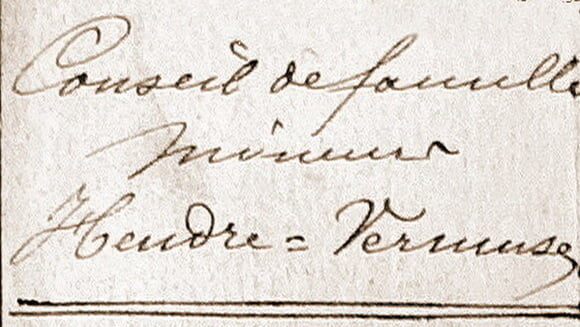 Conseil de famille
mineur
Hendre = Vermuse